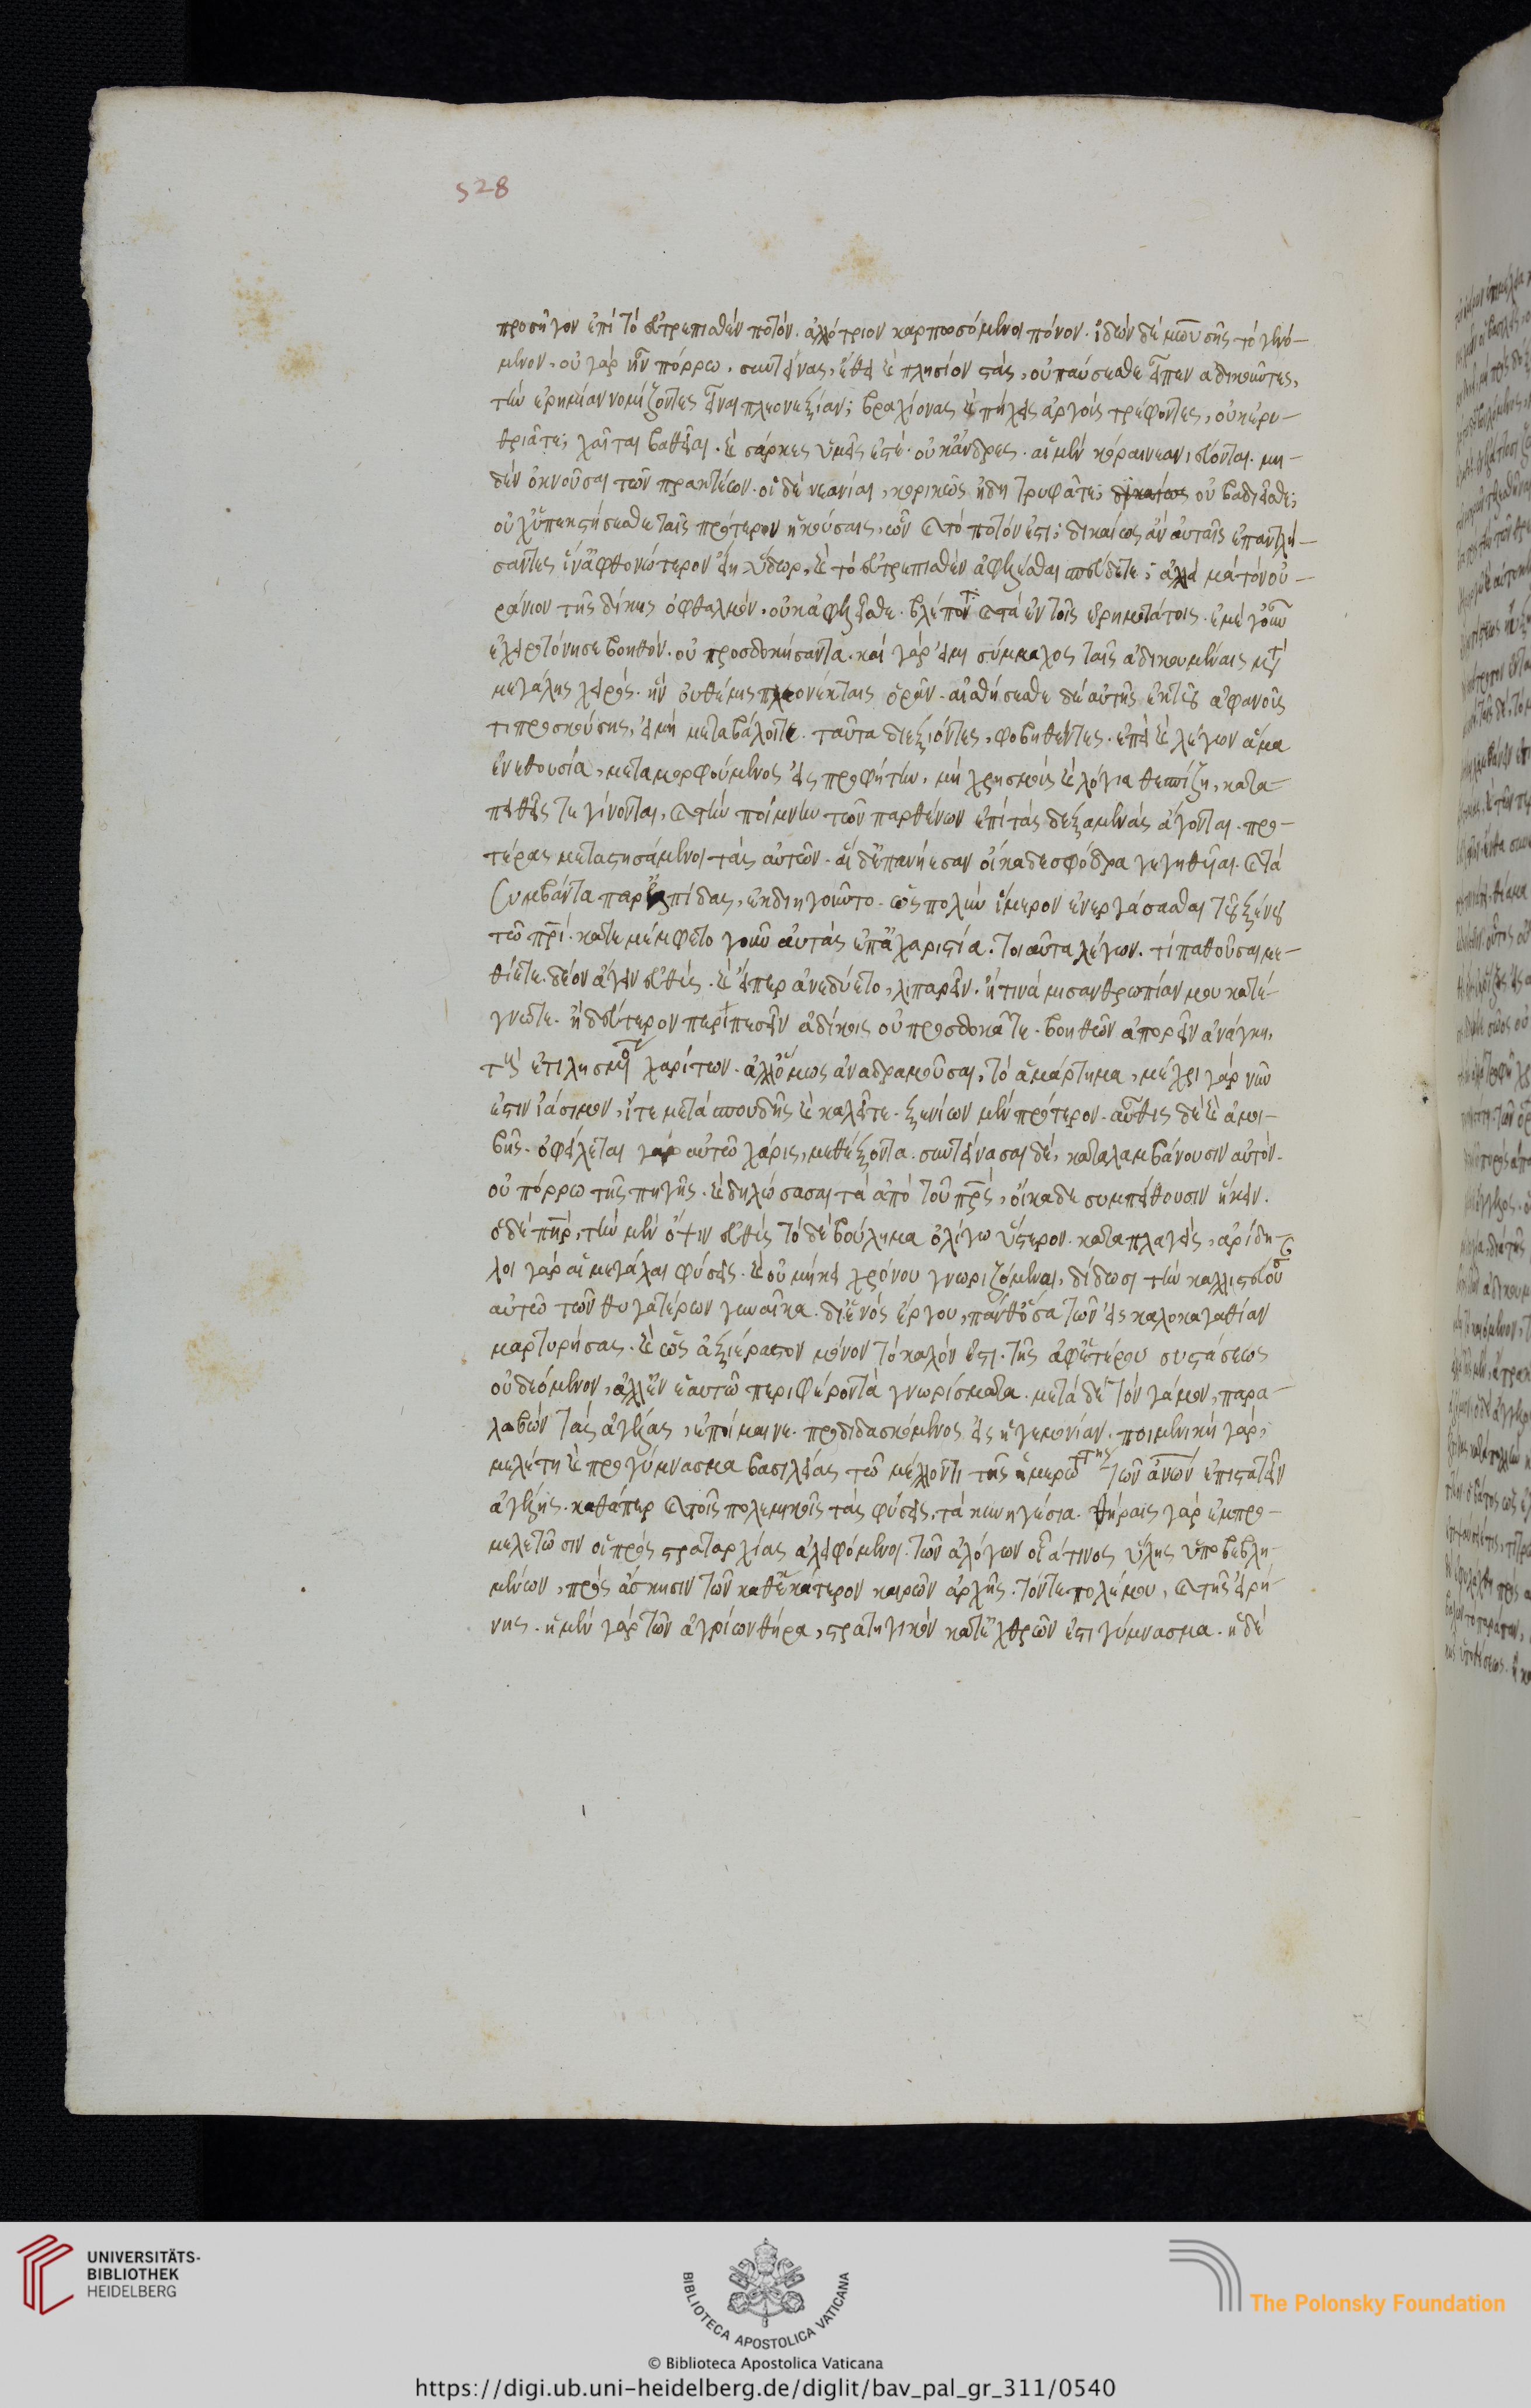 528
προσῆγον ἐπὶ τὸ εὐτρεπισθὲν ποτόν. ἀλλότριον καρπωσόμενοι πόνον. ἰδὼν δὲ μωυσῆς τὸ γενό-
μενον, οὐ γὰρ ἦν πόρρω, συντείνας, ἔθει καὶ πλησίον στάς, οὐ παύσεσθε εἶπεν ἀδικοῦντες,
τὴν ἐρημίαν νομίζοντες εἶναι πλεονεξίαν; βραχίονας καὶ πήχεις ἀργοὺς τρέφοντες, οὐκ ἐρυ-
θριᾶτε; χαῖται βαθεῖαι. καὶ σάρκες ὑμεῖς ἐστέ. οὐκ ἄνδρες. αἱ μὲν κόραι νεανιεύονται. μη-
δὲν ὀκνοῦσαι τῶν πρακτέων. οἱ δὲ νεανίαι, κορικῶς ἤδη τρυφᾶτε; δικαίως οὐ βαδιεῖσθε;
οὐχ ὑπεκστήσεσθε ταῖς πρότερον ἡκούσαις, ὧν καὶ τὸ ποτόν ἐστι; δικαίως ἂν αὐταῖς ἐπαντλή-
σαντες ἵν' ἀφθονώτερον εἴη ὕδωρ, καὶ τὸ εὐτρεπισθὲν ἀφελέσθαι σπεύδετε; ἀλλὰ μὰ τὸν οὐ-
ράνιον τῆς δίκης ὀφθαλμόν, οὐκ ἀφελεῖσθε. βλέποντα καὶ τὰ ἐν τοῖς ἐρημοτάτοις. ἐμὲ γοῦν
ἐχειροτόνησε βοηθόν. οὐ προσδοκήσαντα. καὶ γάρ εἰμι σύμμαχος ταῖς ἀδικουμέναις μετὰ
μεγάλης χειρός. ἣν οὐ θέμις πλεονέκταις ὁρᾶν. αἰσθήσεσθε δὲ αὐτῆς ἐκ τοῦ ἀφανοῦς
τιτρωσκούσης, εἰ μὴ μεταβάλοιτε. ταῦτα διεξιόντος, φοβηθέντες. ἐπεὶ καὶ λέγων ἅμα
ἐνεθουσία, μεταμορφούμενος εἰς προφήτην, μὴ χρησμοὺς καὶ λόγια θεσπίζῃ, κατα-
πειθεῖς τε γίνονται, καὶ τὴν ποίμνην τῶν παρθένων ἐπὶ τὰς δεξαμενὰς ἄγονται. προ-
τέρας μεταστησάμενοι τὰς αὐτῶν. αἱ δ' ἐπανῄεσαν οἴκαδε σφόδρα γεγηθυῖαι. καὶ τὰ
συμβάντα παρ' ἐλπίδας, ἐκδιηγοῦντο. ὡς πολὺν ἵμερον ἐνεργάσασθαι τοῦ ξένου
τῷ πρί. κατεμέμφετο γοῦν αὐτὰς ἐπ' ἀχαριστία. τοιαῦτα λέγων. τί παθοῦσαι με-
θίετε. δέον ἄγειν εὐθύς. καὶ εἴπερ ἀνεδύετο, λιπαρεῖν. ἤ τινα μισανθρωπίαν μου κατέ-
γνωτε. ἢ δεύτερον περιπεσεῖν ἀδίκοις οὐ προσδοκᾶτε. βοηθῶν ἀπορεῖν ἀνάγκη,
τοὺς ἐπιλήσμονας χαρίτων. ἀλλ' ὅμως ἀναδραμοῦσαι, τὸ ἁμάρτημα, μέχρι γὰρ νῦν
ἐστιν ἰάσιμον, ἴτε μετὰ σπουδῆς καὶ καλεῖτε. ξενίων μὲν πρότερον. αὖθις δὲ καὶ ἀμοι-
βῆς. ὀφείλεται γὰρ αὐτῷ χάρις, μεθέξοντα. συντείνασαι δέ, καταλαμβάνουσιν αὐτὸν.
οὐ πόρρω τῆς πηγῆς. καὶ δηλώσασαι τὰ ἀπὸ τοῦ πρς, οἴκαδε συμπείθουσιν ἥκειν.
ὁ δὲ πηρ, τὴν μὲν ὄψιν εὐθύς τὸ δὲ βούλημα ὀλίγω ὕστερον. καταπλαγείς, ἀρίδη-
λοι γὰρ αἱ μεγάλαι φύσεις. καὶ οὐ μήκει χρόνου γνωριζόμεναι, δίδωσι τὴν καλλιστεύουσαν
αὐτῷ τῶν θυγατέρων γυναῖκα. δι' ἑνὸς ἔργου, πάνθ' ὅσα τῶν εἰς καλοκαγαθίαν
μαρτυρήσας. καὶ ὡς ἀξιέραστον μόνον τὸ καλόν ἐστι. τῆς ἀφ' ἑτέρου συστάσεως
οὐ δεόμενον, ἀλλ' ἐν ἑαυτῷ περιφέρον τὰ γνωρίσματα. μετὰ δὲ τὸν γάμον, παρα-
λαβὼν τὰς ἀγέλας, ἐποίμαινε. προδιδασκόμενος εἰς ἡγεμονίαν. ποιμενικὴ γάρ,
μελέτη καὶ προγύμνασμα βασιλείας τῷ μέλλοντι τῆς ἡμερωτάτης τῶν ἀνων ἐπιστατεῖν
ἀγέλης. καθάπερ καὶ τοῖς πολεμικοῖς τὰς φύσεις, τὰ κυνηγέσια. θήραις γὰρ ἐμπρο-
μελετῶσιν οἱ πρὸς στραταρχίας ἀλειφόμενοι. τῶν ἀλόγων οἷά τινος ὕλης ὑποβεβλη-
μένων, πρὸς ἄσκησιν τῶν καθ' ἑκάτερον καιρῶν ἀρχῆς. τόν τε πολέμου, καὶ τῆς εἰρή-
νης. ἡ μὲν γὰρ τῶν ἀγρίων θήρα, στρατηγικὸν κατ' ἐχθρῶν ἐστι γύμνασμα. ἡ δὲ
UNIVERSITÄTS-
BIBLIOTHEK
HEIDELBERG
BIBLIOTECA APOSTOLICA VATICANA
The Polonsky Foundation
© Biblioteca Apostolica Vaticana
https://digi.ub.uni-heidelberg.de/diglit/bav_pal_gr_311/0540